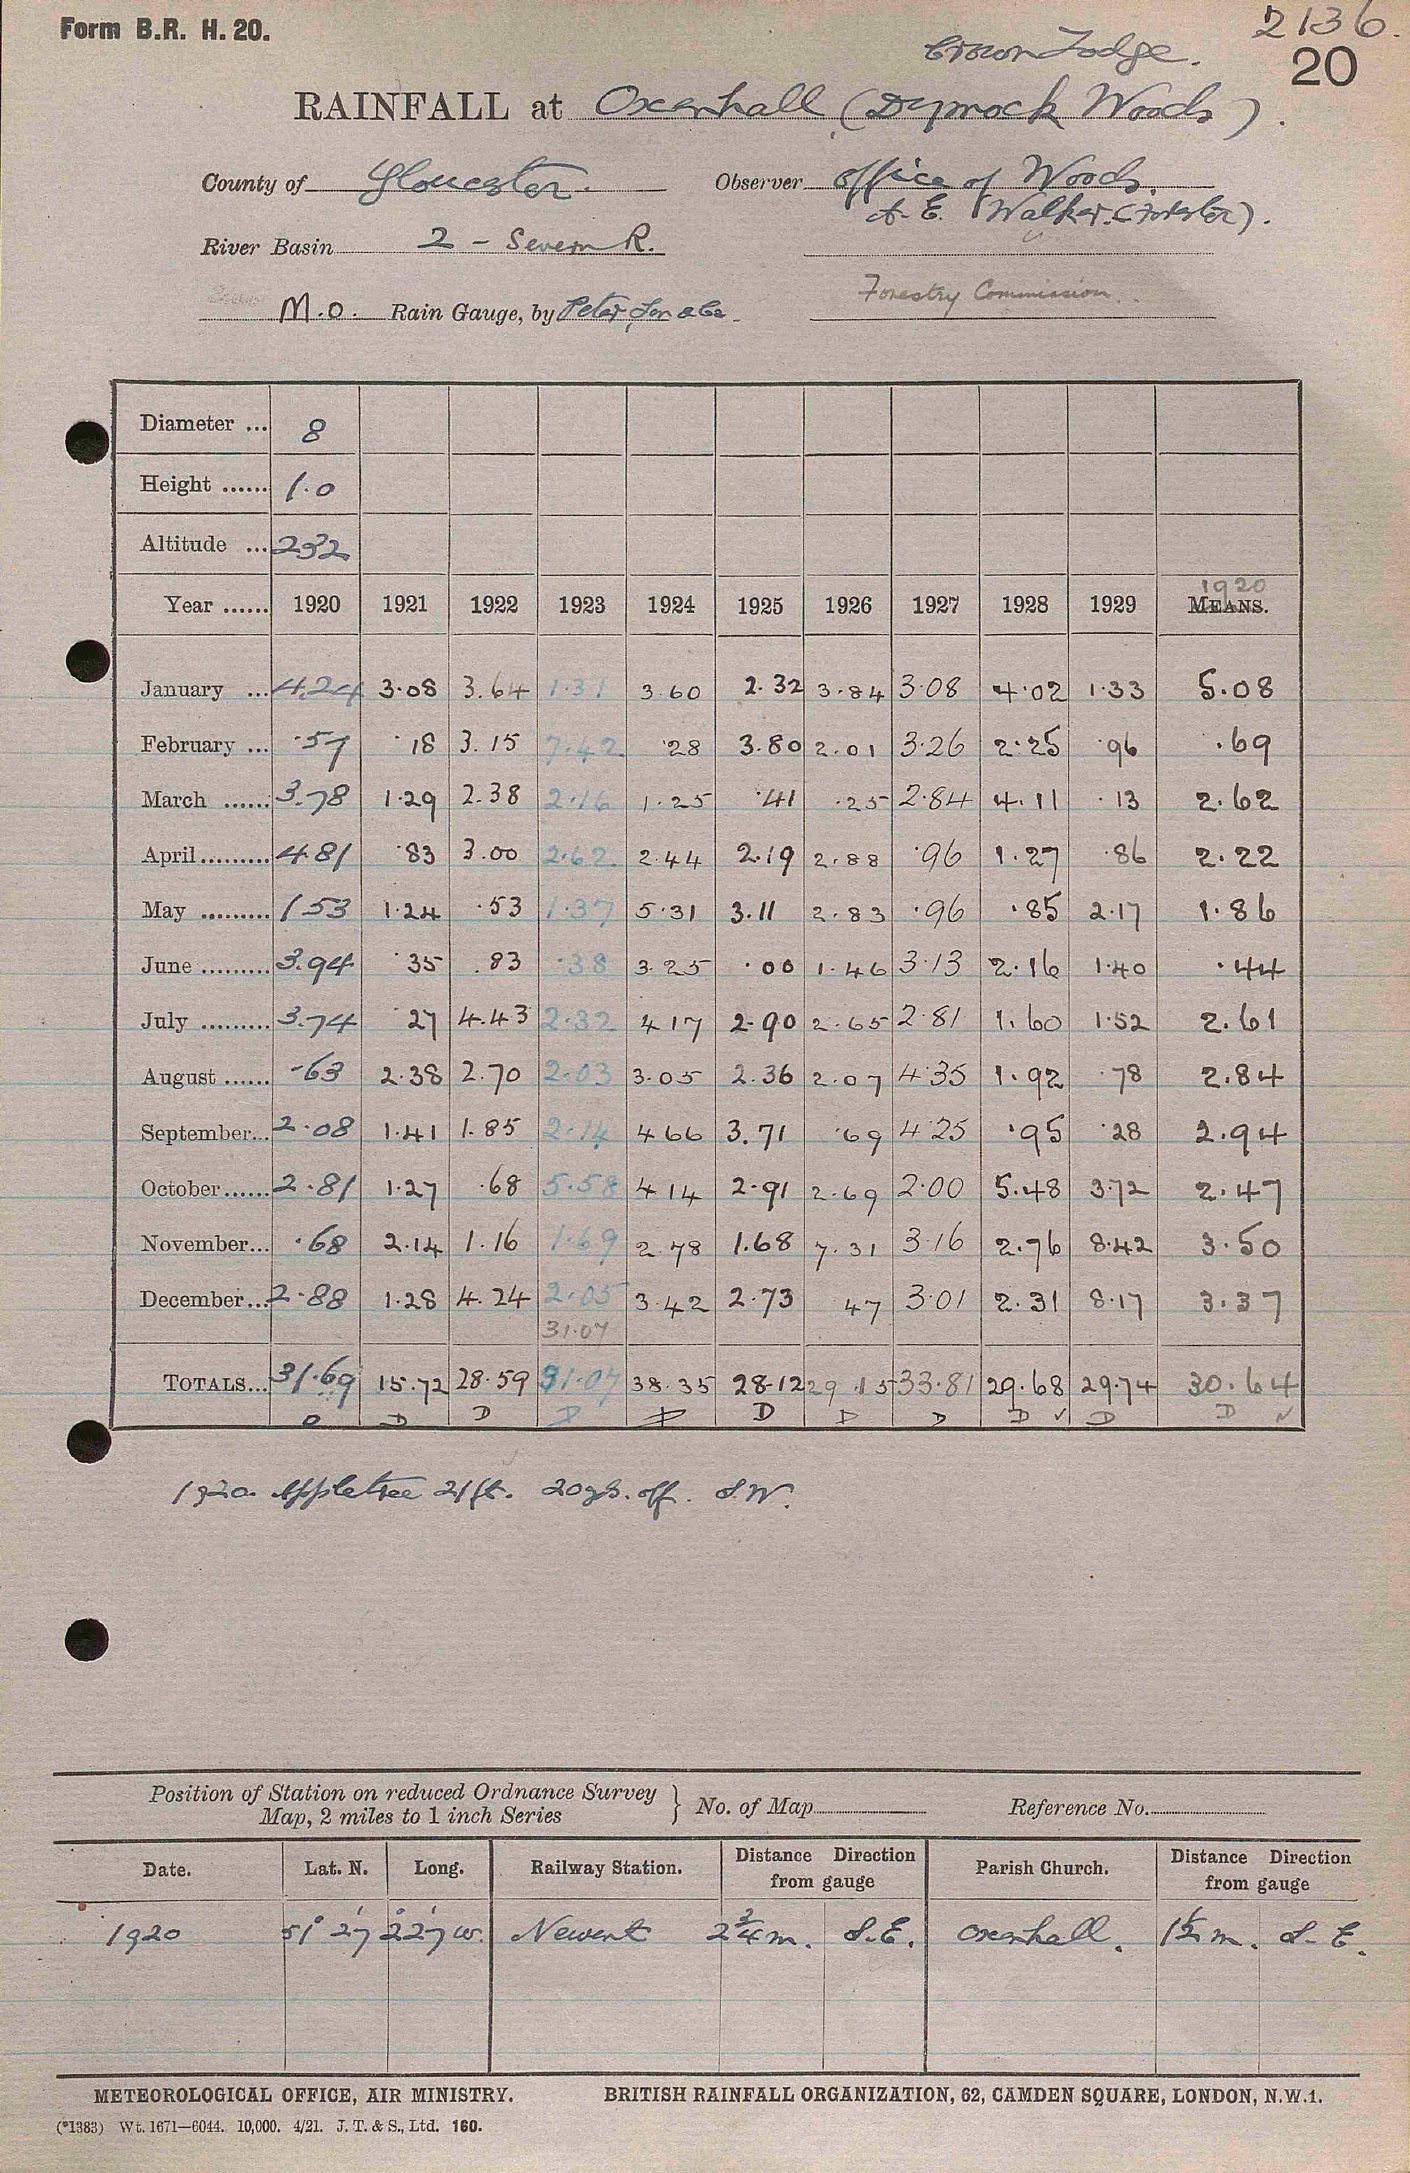 Form B.R. H. 20.
2136.
20
Crown Lodge.
RAINFALL at Oxenhall (Dymock Woods).
County of Gloucester. Observer Office of Woods.
A. E. Walker (Forester).
River Basin 2 - Severn R.
M.O. Rain Gauge, by Peter, Son & Co. Forestry Commission.
Diameter ... 8
Height ...... 1.0
Altitude ... 232
Year ...... 1920 1921 1922 1923 1924 1925 1926 1927 1928 1929 MEANS. 1920
January ... 4.24 3.08 3.64 1.31 3.60 2.32 3.84 3.08 4.02 1.33 5.08
February ... .57 .18 3.15 7.42 .28 3.80 2.01 3.26 2.25 .96 .69
March ...... 3.78 1.29 2.38 2.16 1.25 .41 .25 2.84 4.11 .13 2.62
April ......... 4.81 .83 3.00 2.62 2.44 2.19 2.88 .96 1.27 .86 2.22
May ......... 1.53 1.24 .53 1.37 5.31 3.11 2.83 .96 .85 2.17 1.86
June ......... 3.94 .35 .83 .38 3.25 .00 1.46 3.13 2.16 1.40 .44
July ......... 3.74 .27 4.43 2.32 4.17 2.90 2.65 2.81 1.60 1.52 2.61
August ...... .63 2.38 2.70 2.03 3.05 2.36 2.07 4.35 1.92 .78 2.84
September... 2.08 1.41 1.85 2.14 4.66 3.71 .69 4.25 .95 .28 2.94
October...... 2.81 1.27 .68 5.58 4.14 2.91 2.69 2.00 5.48 3.72 2.47
November... .68 2.14 1.16 1.69 2.78 1.68 7.31 3.16 2.76 8.42 3.50
December... 2.88 1.28 4.24 2.05 3.42 2.73 .47 3.01 2.31 8.17 3.37
31.07
TOTALS... 31.69 15.72 28.59 31.07 38.35 28.12 29.15 33.81 29.68 29.74 30.64
D D D D D D D D ✓ D D ✓
1920. Appletree 21ft. 20yds. off. S.W.
Position of Station on reduced Ordnance Survey
Map, 2 miles to 1 inch Series } No. of Map Reference No.
Date. Lat. N. Long. Railway Station. Distance Direction from gauge Parish Church. Distance Direction from gauge
1920 51° 27' 2° 27' W. Newent 2 3/4 m. S.E. Oxenhall. 1 1/2 m. S.E.
METEOROLOGICAL OFFICE, AIR MINISTRY. BRITISH RAINFALL ORGANIZATION, 62, CAMDEN SQUARE, LONDON, N.W.1.
(*1383) Wt. 1671—6044. 10,000. 4/21. J. T. & S., Ltd. 160.